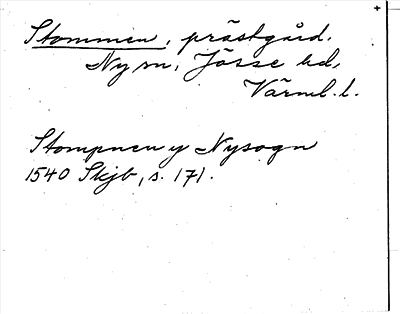 Stommen, prästgård.
Ny sn, Jösse hd,
Värml. l.
Stompnen y Nysogn
1540 Skjb, s. 171.